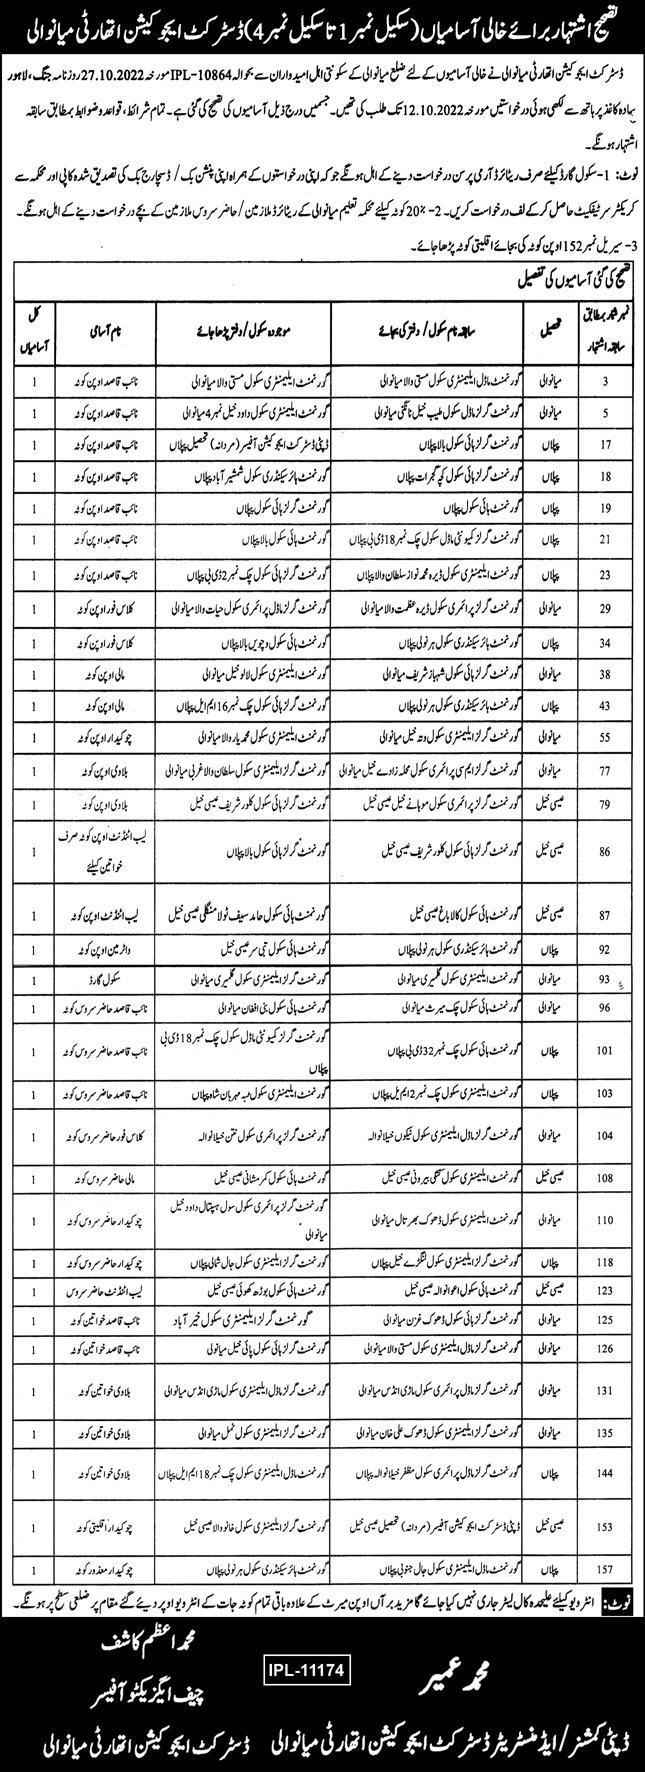 تصحیح اشتہار برائے خالی آسامیاں (سکیل نمبر 1 تا سکیل نمبر 4) ڈسٹرکٹ ایجوکیشن اتھارٹی میانوالی
ڈسٹرکٹ ایجوکیشن اتھارٹی میانوالی نے خالی آسامیوں کے لئے ضلع میانوالی کے سکونتی اہل امیدواران سے بحوالہ IPL-10864 مورخہ 27.10.2022 روزنامہ جنگ، لاہور
سادہ کاغذ پر ہاتھ سے لکھی ہوئی درخواستیں مورخہ 12.10.2022 تک طلب کی تھیں۔ جسمیں درج ذیل آسامیوں کی تصحیح کی گئی ہے۔ تمام شرائط، قواعد و ضوابط بمطابق سابقہ
اشتہار ہونگے۔
نوٹ: 1- سکول گارڈ کیلئے صرف ریٹائرڈ آرمی پرسن درخواست دینے کے اہل ہونگے جو کہ اپنی درخواستوں کے ہمراہ اپنی پنشن بک/ ڈسچارج بک کی تصدیق شدہ کاپی اور محکمہ سے
کریکٹر سرٹیفکیٹ حاصل کر کے لف درخواست کریں۔ 2- 20% کوٹہ کیلئے محکمہ تعلیم میانوالی کے ریٹائرڈ ملازمین/ حاضر سروس ملازمین کے بچے درخواست دینے کے اہل ہونگے۔
3- سیریل نمبر 152 اوپن کوٹہ کی بجائے اقلیتی کوٹہ پڑھا جائے۔
تصحیح کی گئی آسامیوں کی تفصیل
نمبر شمار بمطابق سابقہ اشتہار | تحصیل | سابقہ نام سکول/ دفتر کی بجائے | موجودہ سکول/ دفتر پڑھا جائے | نام آسامی | کل آسامیاں
3 | میانوالی | گورنمنٹ ماڈل ایلیمنٹری سکول مستی والا میانوالی | گورنمنٹ ایلیمنٹری سکول مستی والا میانوالی | نائب قاصد اوپن کوٹہ | 1
5 | میانوالی | گورنمنٹ گرلز ماڈل سکول طیب خیل نانگنی میانوالی | گورنمنٹ گرلز ایلیمنٹری سکول داود خیل نمبر 4 میانوالی | نائب قاصد اوپن کوٹہ | 1
17 | پپلاں | گورنمنٹ گرلز ہائی سکول بالا پپلاں | ڈپٹی ڈسٹرکٹ ایجوکیشن آفیسر (مردانہ) تحصیل پپلاں | نائب قاصد اوپن کوٹہ | 1
18 | پپلاں | گورنمنٹ گرلز ہائی سکول کچہ گجرات پپلاں | گورنمنٹ ہائر سیکنڈری سکول شمشیر آباد پپلاں | نائب قاصد اوپن کوٹہ | 1
19 | پپلاں | گورنمنٹ ہائی سکول پپلاں | گورنمنٹ گرلز ہائی سکول پپلاں | نائب قاصد اوپن کوٹہ | 1
21 | پپلاں | گورنمنٹ گرلز کمیونٹی ماڈل سکول چک نمبر 18 ڈی بی پپلاں | گورنمنٹ ہائی سکول بالا پپلاں | نائب قاصد اوپن کوٹہ | 1
23 | پپلاں | گورنمنٹ ایلیمنٹری سکول ڈیرہ محمد نواز سلطان والا پپلاں | گورنمنٹ گرلز ہائی سکول چک نمبر 2 ڈی بی پپلاں | نائب قاصد اوپن کوٹہ | 1
29 | میانوالی | گورنمنٹ گرلز پرائمری سکول ڈیرہ عظمت والا میانوالی | گورنمنٹ گرلز ماڈل پرائمری سکول حیات والا میانوالی | کلاس فور اوپن کوٹہ | 1
34 | پپلاں | گورنمنٹ ہائر سیکنڈری سکول ہرنولی پپلاں | گورنمنٹ ہائی سکول وچویں بالا پپلاں | کلاس فور اوپن کوٹہ | 1
38 | میانوالی | گورنمنٹ گرلز ہائی سکول شہباز شریف میانوالی | گورنمنٹ ایلیمنٹری سکول لالو خیل میانوالی | مالی اوپن کوٹہ | 1
43 | پپلاں | گورنمنٹ ہائر سیکنڈری سکول ہرنولی پپلاں | گورنمنٹ ہائی سکول چک نمبر 16 ایم ایل پپلاں | مالی اوپن کوٹہ | 1
55 | میانوالی | گورنمنٹ گرلز ایلیمنٹری سکول وتہ خیل میانوالی | گورنمنٹ ایلیمنٹری سکول محمد یار والا میانوالی | چوکیدار اوپن کوٹہ | 1
77 | میانوالی | گورنمنٹ گرلز ایم سی پرائمری سکول محلہ زادے خیل میانوالی | گورنمنٹ گرلز ایلیمنٹری سکول سلطان والا غربی میانوالی | بلاوی اوپن کوٹہ | 1
79 | عیسیٰ خیل | گورنمنٹ گرلز پرائمری سکول موہانے خیل عیسیٰ خیل | گورنمنٹ گرلز ہائی سکول کلور شریف عیسیٰ خیل | بلاوی اوپن کوٹہ | 1
86 | عیسیٰ خیل | گورنمنٹ گرلز ہائی سکول کلور شریف عیسیٰ خیل | گورنمنٹ گرلز ہائی سکول بالا پپلاں | لیب اٹنڈنٹ اوپن کوٹہ صرف خواتین کیلئے | 1
87 | عیسیٰ خیل | گورنمنٹ ہائی سکول کالاباغ عیسیٰ خیل | گورنمنٹ ہائی سکول حامد سیف ٹولا منگلی عیسیٰ خیل | لیب اٹنڈنٹ اوپن کوٹہ | 1
92 | پپلاں | گورنمنٹ ہائر سیکنڈری سکول ہرنولی پپلاں | گورنمنٹ ہائی سکول تبی سر عیسیٰ خیل | واٹر مین اوپن کوٹہ | 1
93 | میانوالی | گورنمنٹ گرلز ایلیمنٹری سکول گلمیری میانوالی | گورنمنٹ گرلز ایلیمنٹری سکول گلمیری میانوالی | سکول گارڈ | 1
96 | میانوالی | گورنمنٹ ہائی سکول چک میرث میانوالی | گورنمنٹ ہائی سکول بنی افغان میانوالی | نائب قاصد حاضر سروس کوٹہ | 1
101 | پپلاں | گورنمنٹ ہائی سکول چک نمبر 32 ڈی بی پپلاں | گورنمنٹ گرلز کمیونٹی ماڈل سکول چک نمبر 18 ڈی بی پپلاں | نائب قاصد حاضر سروس کوٹہ | 1
103 | پپلاں | گورنمنٹ ایلیمنٹری سکول چک نمبر 2 ایم ایل پپلاں | گورنمنٹ ایلیمنٹری سکول ٹبہ مہربان شاہ پپلاں | نائب قاصد حاضر سروس کوٹہ | 1
104 | میانوالی | گورنمنٹ گرلز ماڈل ایلیمنٹری سکول خیلانوالہ | گورنمنٹ گرلز پرائمری سکول خیلانوالہ | کلاس فور حاضر سروس کوٹہ | 1
108 | عیسیٰ خیل | گورنمنٹ ایلیمنٹری سکول بیرونی عیسیٰ خیل | گورنمنٹ ہائی سکول کمر مشانی عیسیٰ خیل | مالی حاضر سروس کوٹہ | 1
110 | میانوالی | گورنمنٹ ایلیمنٹری سکول ڈھوک بھرتال میانوالی | گورنمنٹ گرلز پرائمری سکول سول ہسپتال داود خیل میانوالی | چوکیدار حاضر سروس کوٹہ | 1
118 | پپلاں | گورنمنٹ گرلز ایلیمنٹری سکول لنگڑے خیل پپلاں | گورنمنٹ گرلز ایلیمنٹری سکول جال شمالی پپلاں | چوکیدار حاضر سروس کوٹہ | 1
123 | عیسیٰ خیل | گورنمنٹ ہائی سکول اعوانوالہ عیسیٰ خیل | گورنمنٹ ہائی سکول بوڑھ کھوئی عیسیٰ خیل | لیب اٹنڈنٹ حاضر سروس | 1
125 | میانوالی | گورنمنٹ گرلز ہائی سکول ڈھوک غزن میانوالی | گورنمنٹ گرلز ایلیمنٹری سکول خیر آباد | نائب قاصد خواتین کوٹہ | 1
126 | میانوالی | گورنمنٹ گرلز ماڈل ایلیمنٹری سکول مستی والا میانوالی | گورنمنٹ گرلز ہائی سکول پائی خیل میانوالی | نائب قاصد خواتین کوٹہ | 1
131 | میانوالی | گورنمنٹ گرلز ماڈل پرائمری سکول ماڑی انڈس میانوالی | گورنمنٹ گرلز ماڈل ایلیمنٹری سکول ماڑی انڈس میانوالی | بلاوی خواتین کوٹہ | 1
135 | میانوالی | گورنمنٹ گرلز ایلیمنٹری سکول ڈھوک علی خان میانوالی | گورنمنٹ گرلز ایلیمنٹری سکول نمل میانوالی | بلاوی خواتین کوٹہ | 1
144 | پپلاں | گورنمنٹ گرلز ماڈل پرائمری سکول مظفر خیلانوالہ پپلاں | گورنمنٹ ماڈل ایلیمنٹری سکول چک نمبر 18 ایم ایل پپلاں | بلاوی خواتین کوٹہ | 1
153 | عیسیٰ خیل | ڈپٹی ڈسٹرکٹ ایجوکیشن آفیسر (مردانہ) تحصیل عیسیٰ خیل | گورنمنٹ گرلز ایلیمنٹری سکول خانو والا عیسیٰ خیل | چوکیدار اقلیتی کوٹہ | 1
157 | پپلاں | گورنمنٹ ماڈل ایلیمنٹری سکول جال جنوبی پپلاں | گورنمنٹ ہائر سیکنڈری سکول ہرنولی پپلاں | چوکیدار معذور کوٹہ | 1
نوٹ: انٹرویو کیلئے علیحدہ کال لیٹر جاری نہیں کیا جائے گا مزید برآں اوپن میرٹ کے علاوہ باقی تمام کوٹہ جات کے انٹرویو اوپر دیئے گئے مقام پر ضلعی سطح پر ہونگے۔
محمد عمیر
ڈپٹی کمشنر/ ایڈمنسٹریٹر ڈسٹرکٹ ایجوکیشن اتھارٹی میانوالی
IPL-11174
محمد اعظم کاشف
چیف ایگزیکٹو آفیسر
ڈسٹرکٹ ایجوکیشن اتھارٹی میانوالی